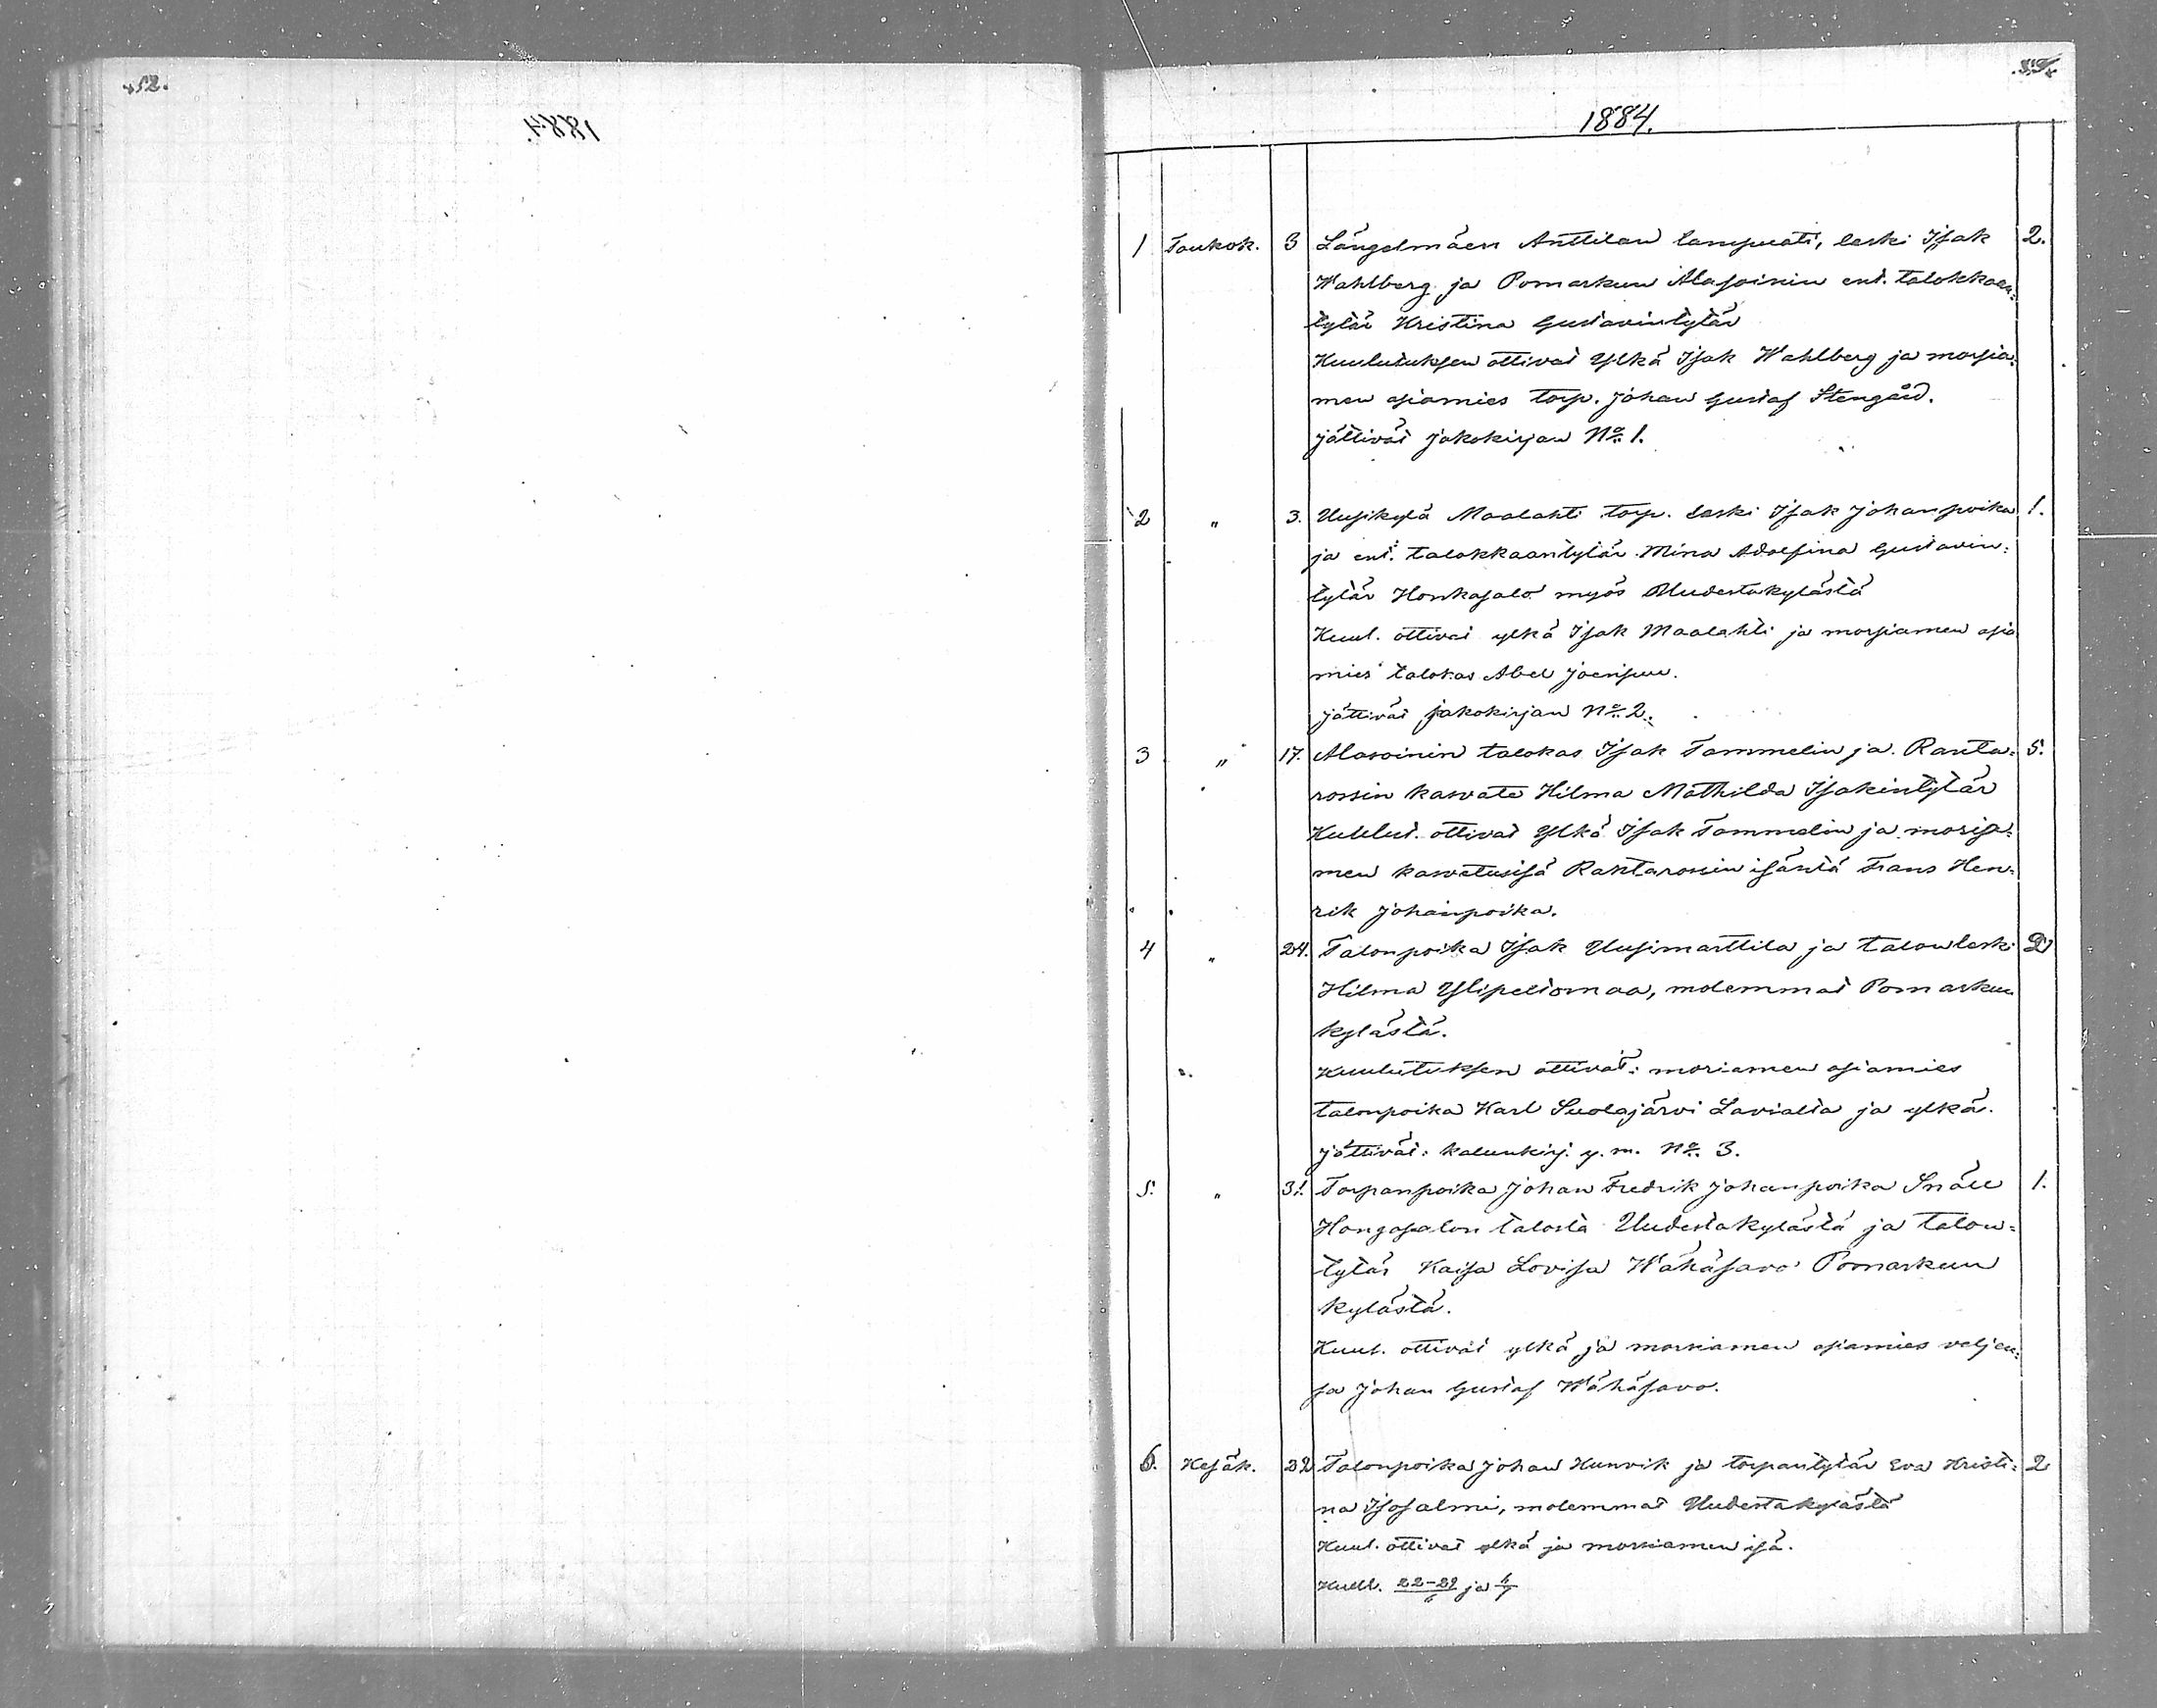 1884.
1 Toukok. 3 Längelmäen Anttilan lampuoti, leski Isak 2.
Wahlberg ja Pomarkun Alasoinin ent. talokkaan-
tytär Kristina Gustavintytär
Kuulutuksen ottivat Ylkä Isak Wahlberg ja morsia-
men asiamies torp. Johan Gustaf Stengård.
jättivät jakokirjan No. 1.
2 " 3. Uusikylä Maalahti torp. leski Isak Johanpoika 1.
ja ent. talokkaantytär Mina Adolfina Gustavin-
tytär Honkasalo myös Uudestakylästä
Kuul. ottivat ylkä Isak Maalahti ja morsiamen asia
mies talokas Abel Joensuu.
jättivät jakokirjan No. 2.
3 " 17. Alasoinin talokas Isak Tammelin ja Ranta- 5.
rossin kasvate Hilma Mathilda Isakintytär
Kuulut. ottivat Ylkä Isak Tammelin ja morsia-
men kasvatusisä Rantarossin isäntä Frans Hen-
rik Johanpoika.
4 " 24. Talonpoika Isak Uusimarttila ja talonleski 2
Hilma Ylipeliomaa, molemmat Pomarkun
kylästä.
Kuulutuksen ottivat: morsiamen asiamies
talonpoika Karl Suolajärvi Lavialta ja ylkä.
jättivät: kaluunkirj. y. m. No. 3.
5. " 31. Torpanpoika Johan Fredrik Johanpoika Snäll 1.
Hongasalon talosta Uudestakylästä ja talon-
tytär Kaisa Lovisa Wähäsavo Pomarkun
kylästä.
Kuul. ottivat ylkä ja morsiamen asiamies veljen-
sä Johan Gustaf Wähäsavo.
6. Kesäk. 22 Talonpoika Johan Hunvik ja torpantytär Eva Kristi- 2
na Isosalmi, molemmat Uudestakylästä
Kuul. ottivat ylkä ja morsiamen isä.
Kuull. 22-29/6 ja 6/7